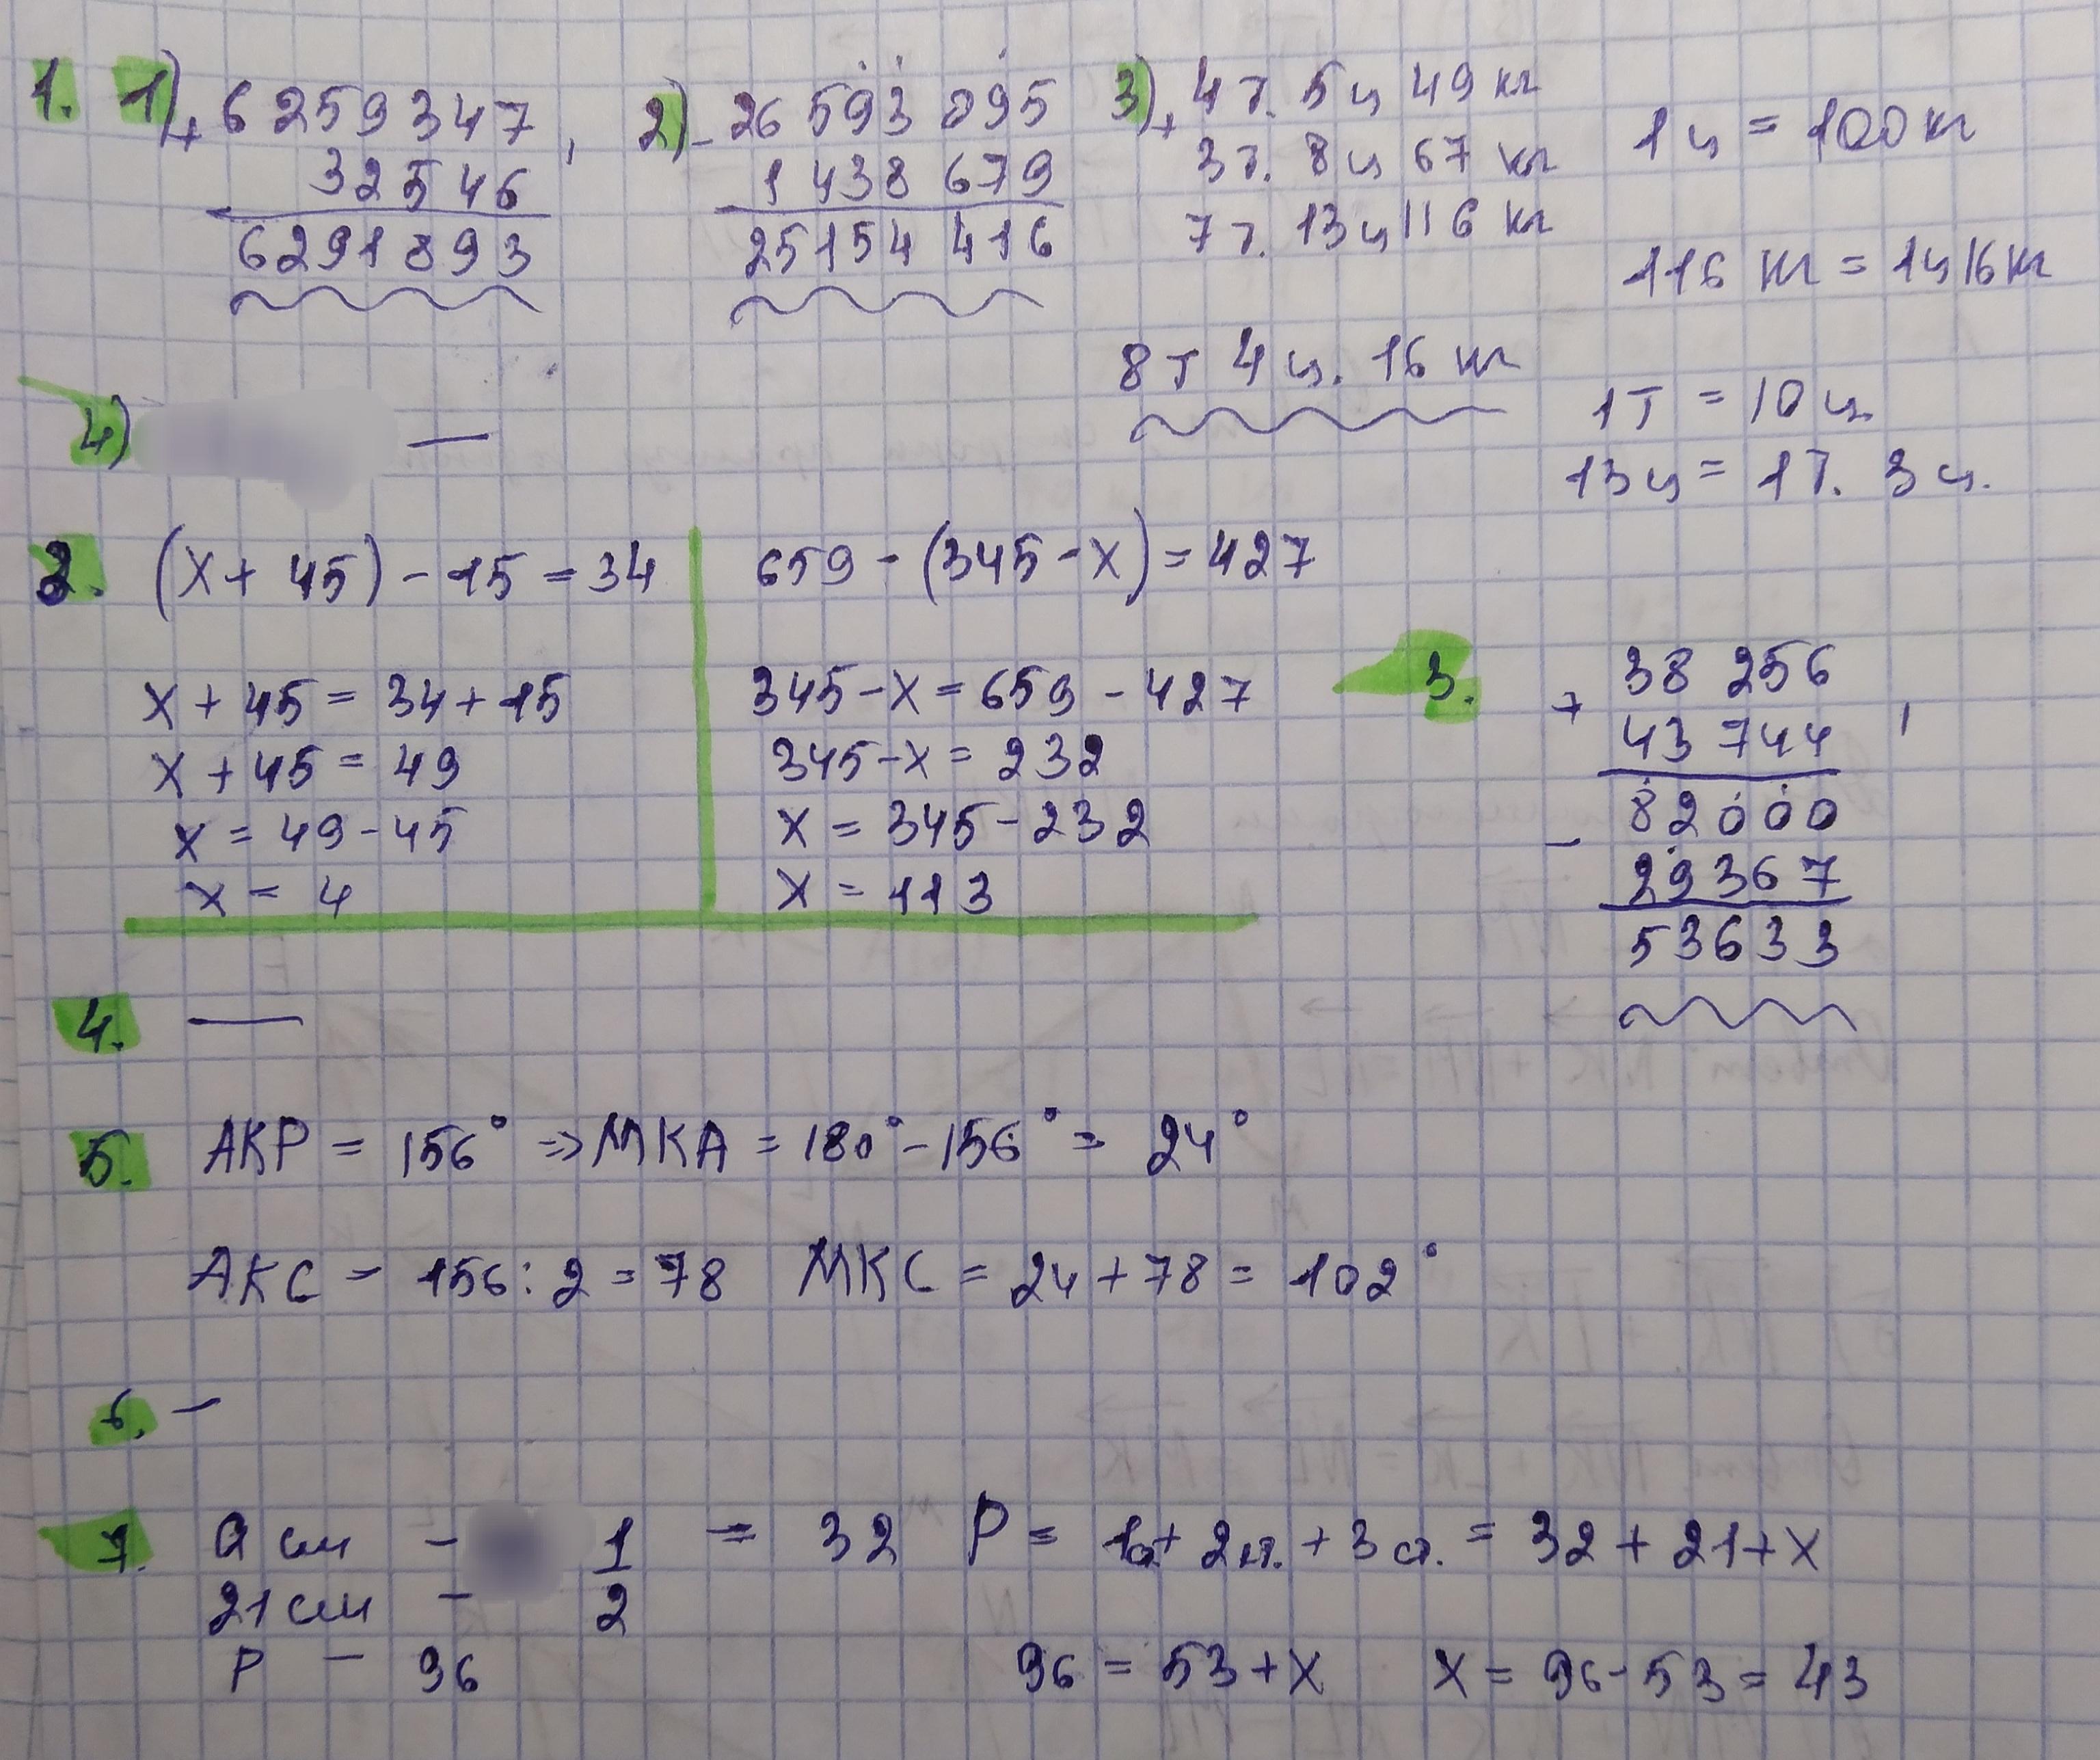 1. 1) + 6259347 ,
32546
6291893
2) - 26 593 095
1 438 679
25154 416
3) + 4т. 5ц 49 кг
3т. 8ц 67 кг
7т. 13ц 116 кг
8т 4ц. 16 кг
1ц = 100кг
116 кг = 1ц16кг
1т = 10ц
13ц = 1т. 3ц.
4) —
2. (x + 45) - 15 = 34
x + 45 = 34 + 15
x + 45 = 49
x = 49 - 45
x = 4
659 - (345 - x) = 427
345 - x = 659 - 427
345 - x = 232
x = 345 - 232
x = 113
3. + 38 256 ,
43 744
- 82000
29367
53633
4. —
5. AKP = 156° => MKA = 180° - 156° = 24°
AKC = 156 : 2 = 78 MKC = 24 + 78 = 102°
6. —
7. a см - 1/2 = 32 P = 1ст. + 2ст. + 3ст. = 32 + 21 + x
21см -
P - 96 96 = 53 + x x = 96 - 53 = 43